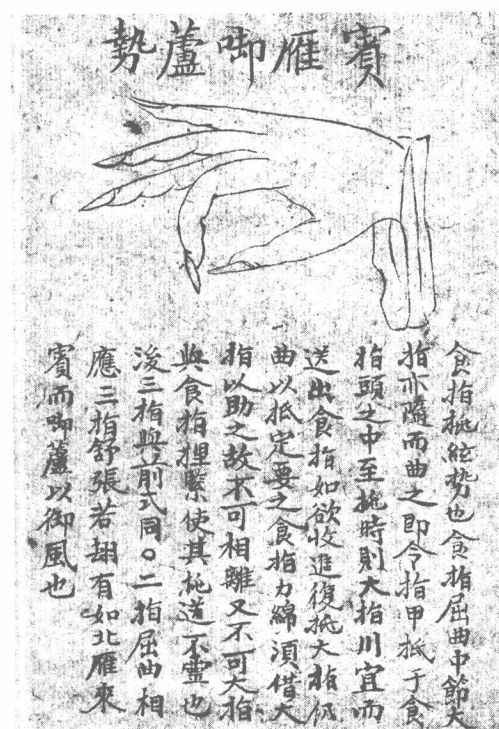 賓雁啣蘆勢
食指挑絃勢也食指屈曲中節大
指亦隨而曲之即令指甲抵于食
指頭之中至挑時則大指川宜而
送出食指如欲收進復抵大指仍
曲以抵定要之食指力綿須借大
指以助之故不可相離又不可大指
與食指捏緊使其挑送不靈也
後三指與前式同○二指屈曲相
應三指舒張若翅有如北雁來
賓而啣蘆以御風也